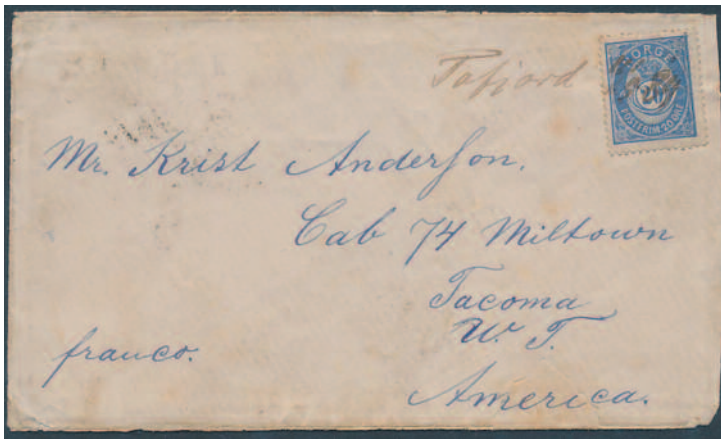 Tafjord
NORGE
20
POSTFRIM. 20 ØRE
Mr. Krist Anderson.
Cab 74 Miltown
Tacoma
W. T.
franco.
America.